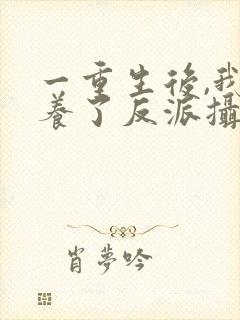 一重生後,我
養了反派攝
肖夢吟